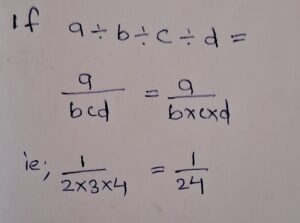 If a÷b÷c÷d =
a/bcd = a/b×c×d
ie; 1/2×3×4 = 1/24